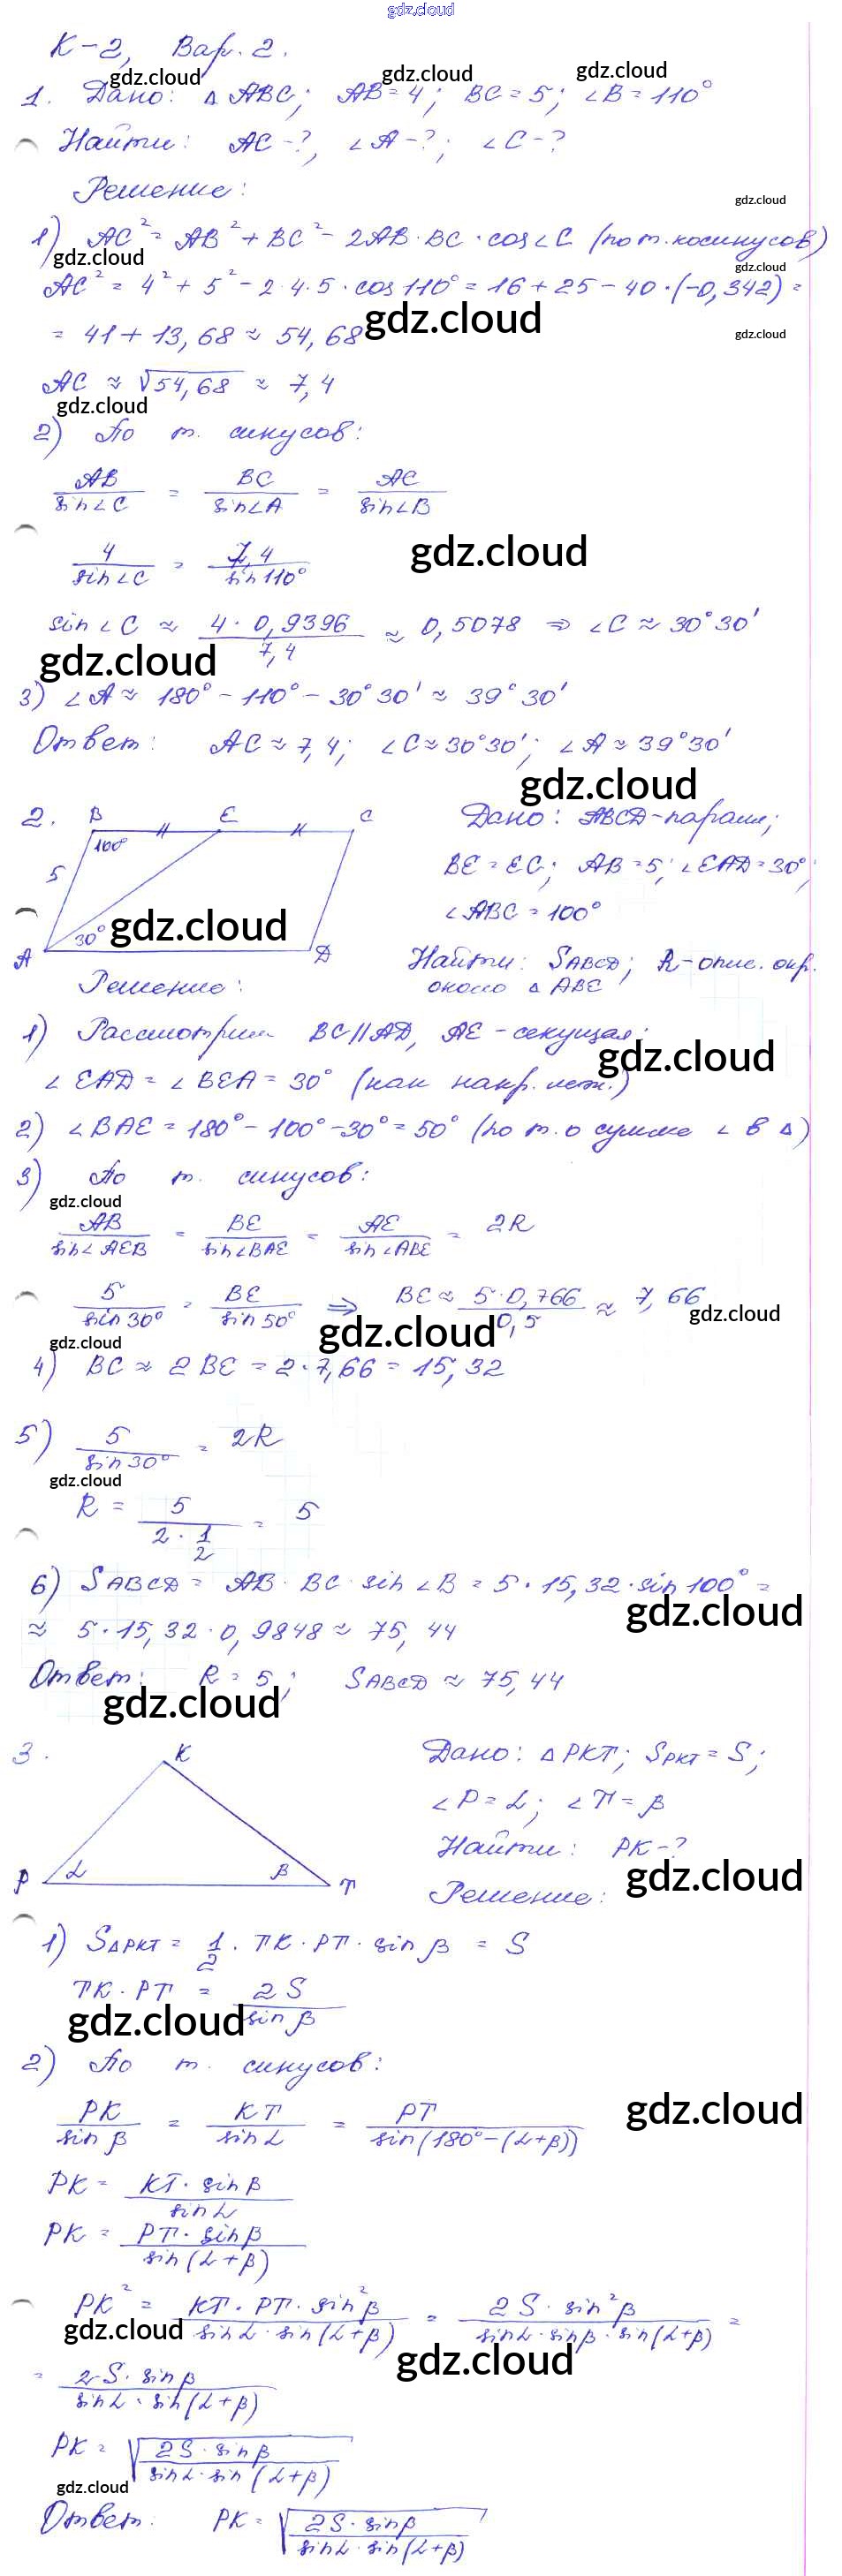 gdz.cloud
К-2, Вар. 2.
gdz.cloud gdz.cloud gdz.cloud
1. Дано: △ ABC; AB = 4; BC = 5; ∠B = 110°
Найти: AC - ?, ∠A - ?; ∠C - ?
Решение:
gdz.cloud
1) AC² = AB² + BC² - 2AB · BC · cos∠C (по т. косинусов)
gdz.cloud gdz.cloud
AC² = 4² + 5² - 2·4·5 · cos 110° = 16 + 25 - 40 · (-0,342) =
= 41 + 13,68 ≈ 54,68
gdz.cloud gdz.cloud
AC ≈ √54,68 ≈ 7,4
gdz.cloud
2) По т. синусов:
AB/sin∠C = BC/sin∠A = AC/sin∠B
4/sin∠C = 7,4/sin110°
gdz.cloud
sin∠C ≈ 4 · 0,9396/7,4 ≈ 0,5078 ⇒ ∠C ≈ 30°30'
gdz.cloud
3) ∠A ≈ 180° - 110° - 30°30' ≈ 39°30'
Ответ: AC ≈ 7,4; ∠C ≈ 30°30'; ∠A ≈ 39°30'
gdz.cloud
2. B E C
100°
5
30°
A D
gdz.cloud
Дано: ABCD - паралл;
BE = EC; AB = 5; ∠EAD = 30°;
∠ABC = 100°
Найти: SABCD; R - опис. окр.
около △ ABE
Решение:
1) Рассмотрим BC || AD, AE - секущая:
gdz.cloud
∠EAD = ∠BEA = 30° (как накр. леж.)
2) ∠BAE = 180° - 100° - 30° = 50° (по т. о сумме ∠ в △)
3) По т. синусов:
gdz.cloud
AB/sin∠AEB = BE/sin∠BAE = AE/sin∠ABE = 2R
5/sin30° = BE/sin50° ⇒ BE ≈ 5·0,766/0,5 ≈ 7,66
gdz.cloud
gdz.cloud gdz.cloud
4) BC ≈ 2BE = 2·7,66 = 15,32
5) 5/sin30° = 2R
gdz.cloud
R = 5/(2 · 1/2) = 5
6) SABCD = AB · BC · sin∠B = 5 · 15,32 · sin100° =
gdz.cloud
≈ 5·15,32·0,9848 ≈ 75,44
Ответ: R = 5; SABCD ≈ 75,44
gdz.cloud
3. K
P α β T
Дано: △ PKT; SPKT = S;
∠P = α; ∠T = β
Найти: PK - ?
gdz.cloud
Решение:
1) S△PKT = 1/2 · TK · PT · sin β = S
TK · PT = 2S/sin β
gdz.cloud
2) По т. синусов:
PK/sin β = KT/sin α = PT/sin(180° - (α+β))
gdz.cloud
PK = KT · sin β/sin α
PK = PT · sin β/sin(α+β)
PK² = KT · PT · sin²β/sin α · sin(α+β) = 2S · sin²β/sin α · sin β · sin(α+β) =
gdz.cloud gdz.cloud
= 2S · sin β/sin α · sin(α+β)
PK = √(2S · sin β/sin α · sin(α+β))
gdz.cloud
Ответ: PK = √(2S · sin β/sin α · sin(α+β))